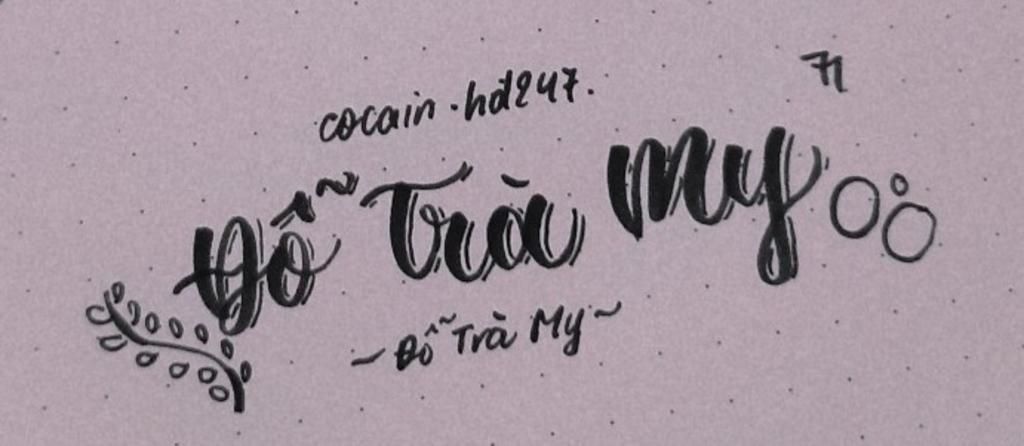 71
cocain.hd247.
Đỗ Trà My
~ Đỗ Trà My ~